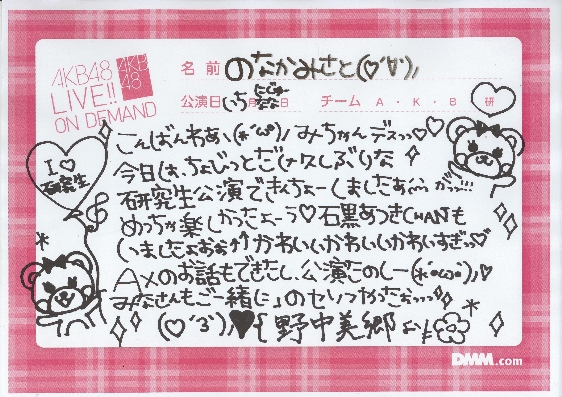 AKB48
LIVE!!
ON DEMAND
AKB
48
名前 のなかみさと(♡'∀')ノ
公演日 いち月 日 チーム A・K・B 研
I♡
研究生
こんばんわあ、(*'ω')ノ みちゃんデスっっ♡♡
今日は、ちょびっとだけ久しぶりな
研究生公演できんちょーしましたあ
めっちゃ楽しかったよーう♡石黒あつきCHANも
いましたよおぉ↑↑かわいいかわいいかわいすぎっ♡
AXのお話もできたし、公演たのしー(*'ω'*)ノ♡
「みなさんもご一緒に」のセリフ
(♡'3')ノ♥{野中美郷より
DMM.com